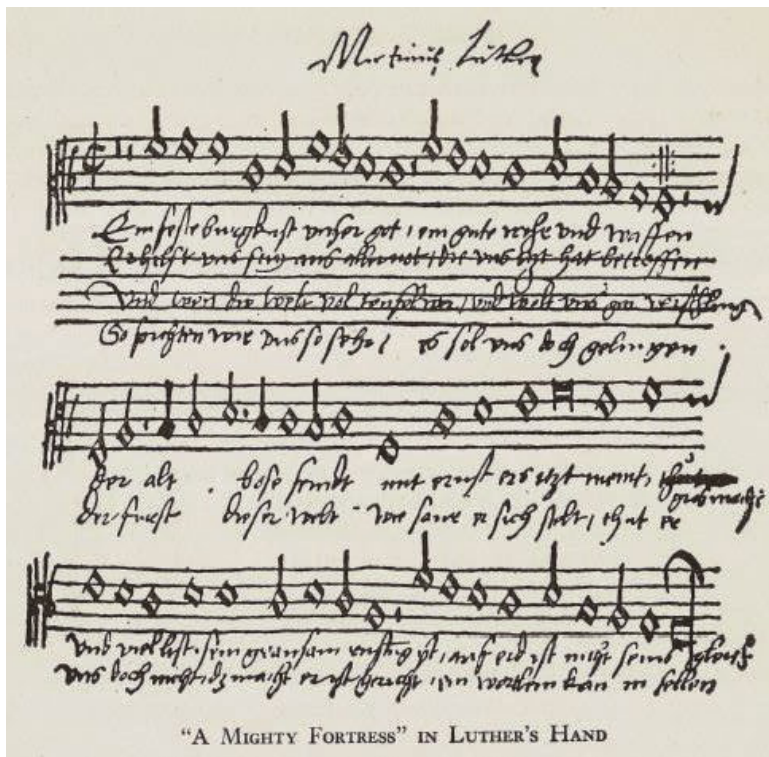 Martinus Luther
Ein feste burgk ist unser got, ein gute wehr und waffen
Er hilfft uns frey aus aller not, die uns itzt hat betroffen
Und wen die welt vol teufel wer, und wolt uns gar
So furchten wir uns so sehr, es sol uns doch gelingen.
der alt bose feindt mit ernst ers itzt meint,
der furst dieser welt wie saur er sich stelt, thut er
und viel list, sein grausam rustung ist, auf erd ist nicht seins gleich
uns doch nicht, dz macht er ist gericht, ein wortlein kan in fellen
"A MIGHTY FORTRESS" IN LUTHER'S HAND